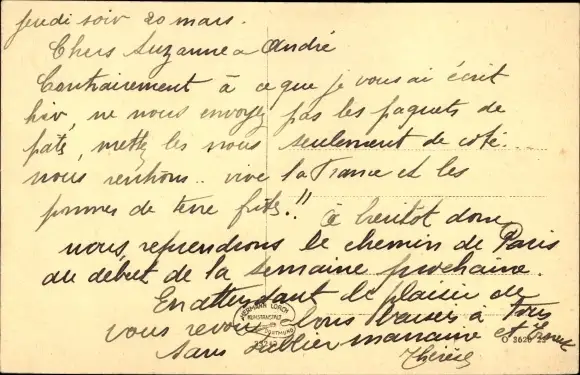 jeudi soir 20 mars.
Chers Suzanne & André
Contrairement à ce que je vous ai écrit
hier, ne nous envoyez pas les paquets de
pâté, mettez les nous seulement de côté.
nous rentrons.. vive la France et les
pommes de terre frites.!!
à bientôt donc
nous reprendrons le chemin de Paris
au début de la semaine prochaine.
En attendant le plaisir de
vous revoir bons baisers à tous
sans oublier marraine et
Thérèse
HERMANN LORCH
KUNSTANSTALT
DORTMUND